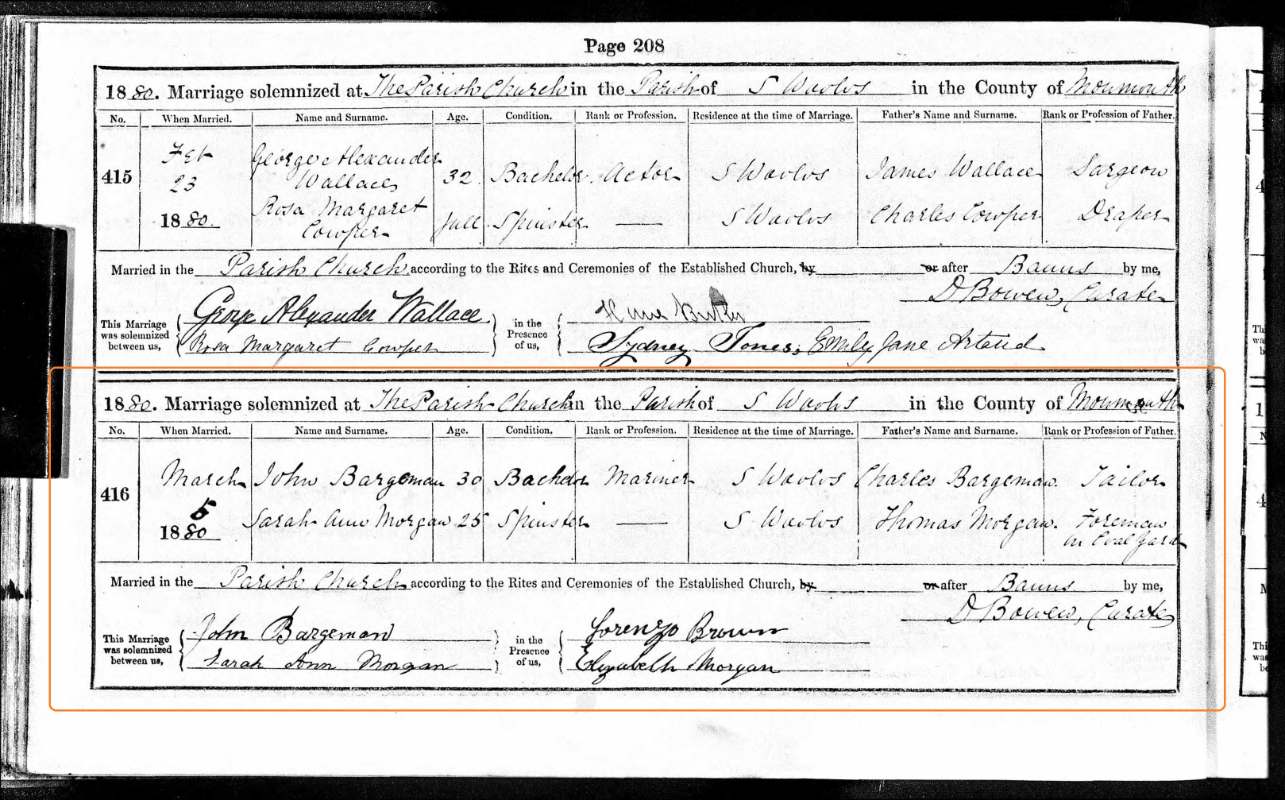 Page 208
1880. Marriage solemnized at The Parish Church in the Parish of S Woolos in the County of Monmouth
No. When Married. Name and Surname. Age. Condition. Rank or Profession. Residence at the time of Marriage. Father's Name and Surname. Rank or Profession of Father.
415 Feb 23 1880. George Alexander Wallace 32 Bachelor Actor S Woolos James Wallace Surgeon
Rosa Margaret Cowper full Spinster — S Woolos Charles Cowper Draper
Married in the Parish Church according to the Rites and Ceremonies of the Established Church, by or after Banns by me,
D Bowen, Curate
This Marriage was solemnized between us, George Alexander Wallace in the Presence of us,
Rosa Margaret Cowper Sydney Jones; Emily Jane
1880. Marriage solemnized at The Parish Church in the Parish of S Woolos in the County of Monmouth
No. When Married. Name and Surname. Age. Condition. Rank or Profession. Residence at the time of Marriage. Father's Name and Surname. Rank or Profession of Father.
416 March 5 1880 John Bargeman 30 Bachelor Mariner S Woolos Charles Bargeman Tailor
Sarah Ann Morgan 25 Spinster — S Woolos Thomas Morgan. Foreman in Coal Yard
Married in the Parish Church according to the Rites and Ceremonies of the Established Church, by or after Banns by me,
D Bowen, Curate
This Marriage was solemnized between us, John Bargeman in the Presence of us, Lorenzo Brown
Sarah Ann Morgan Elizabeth Morgan